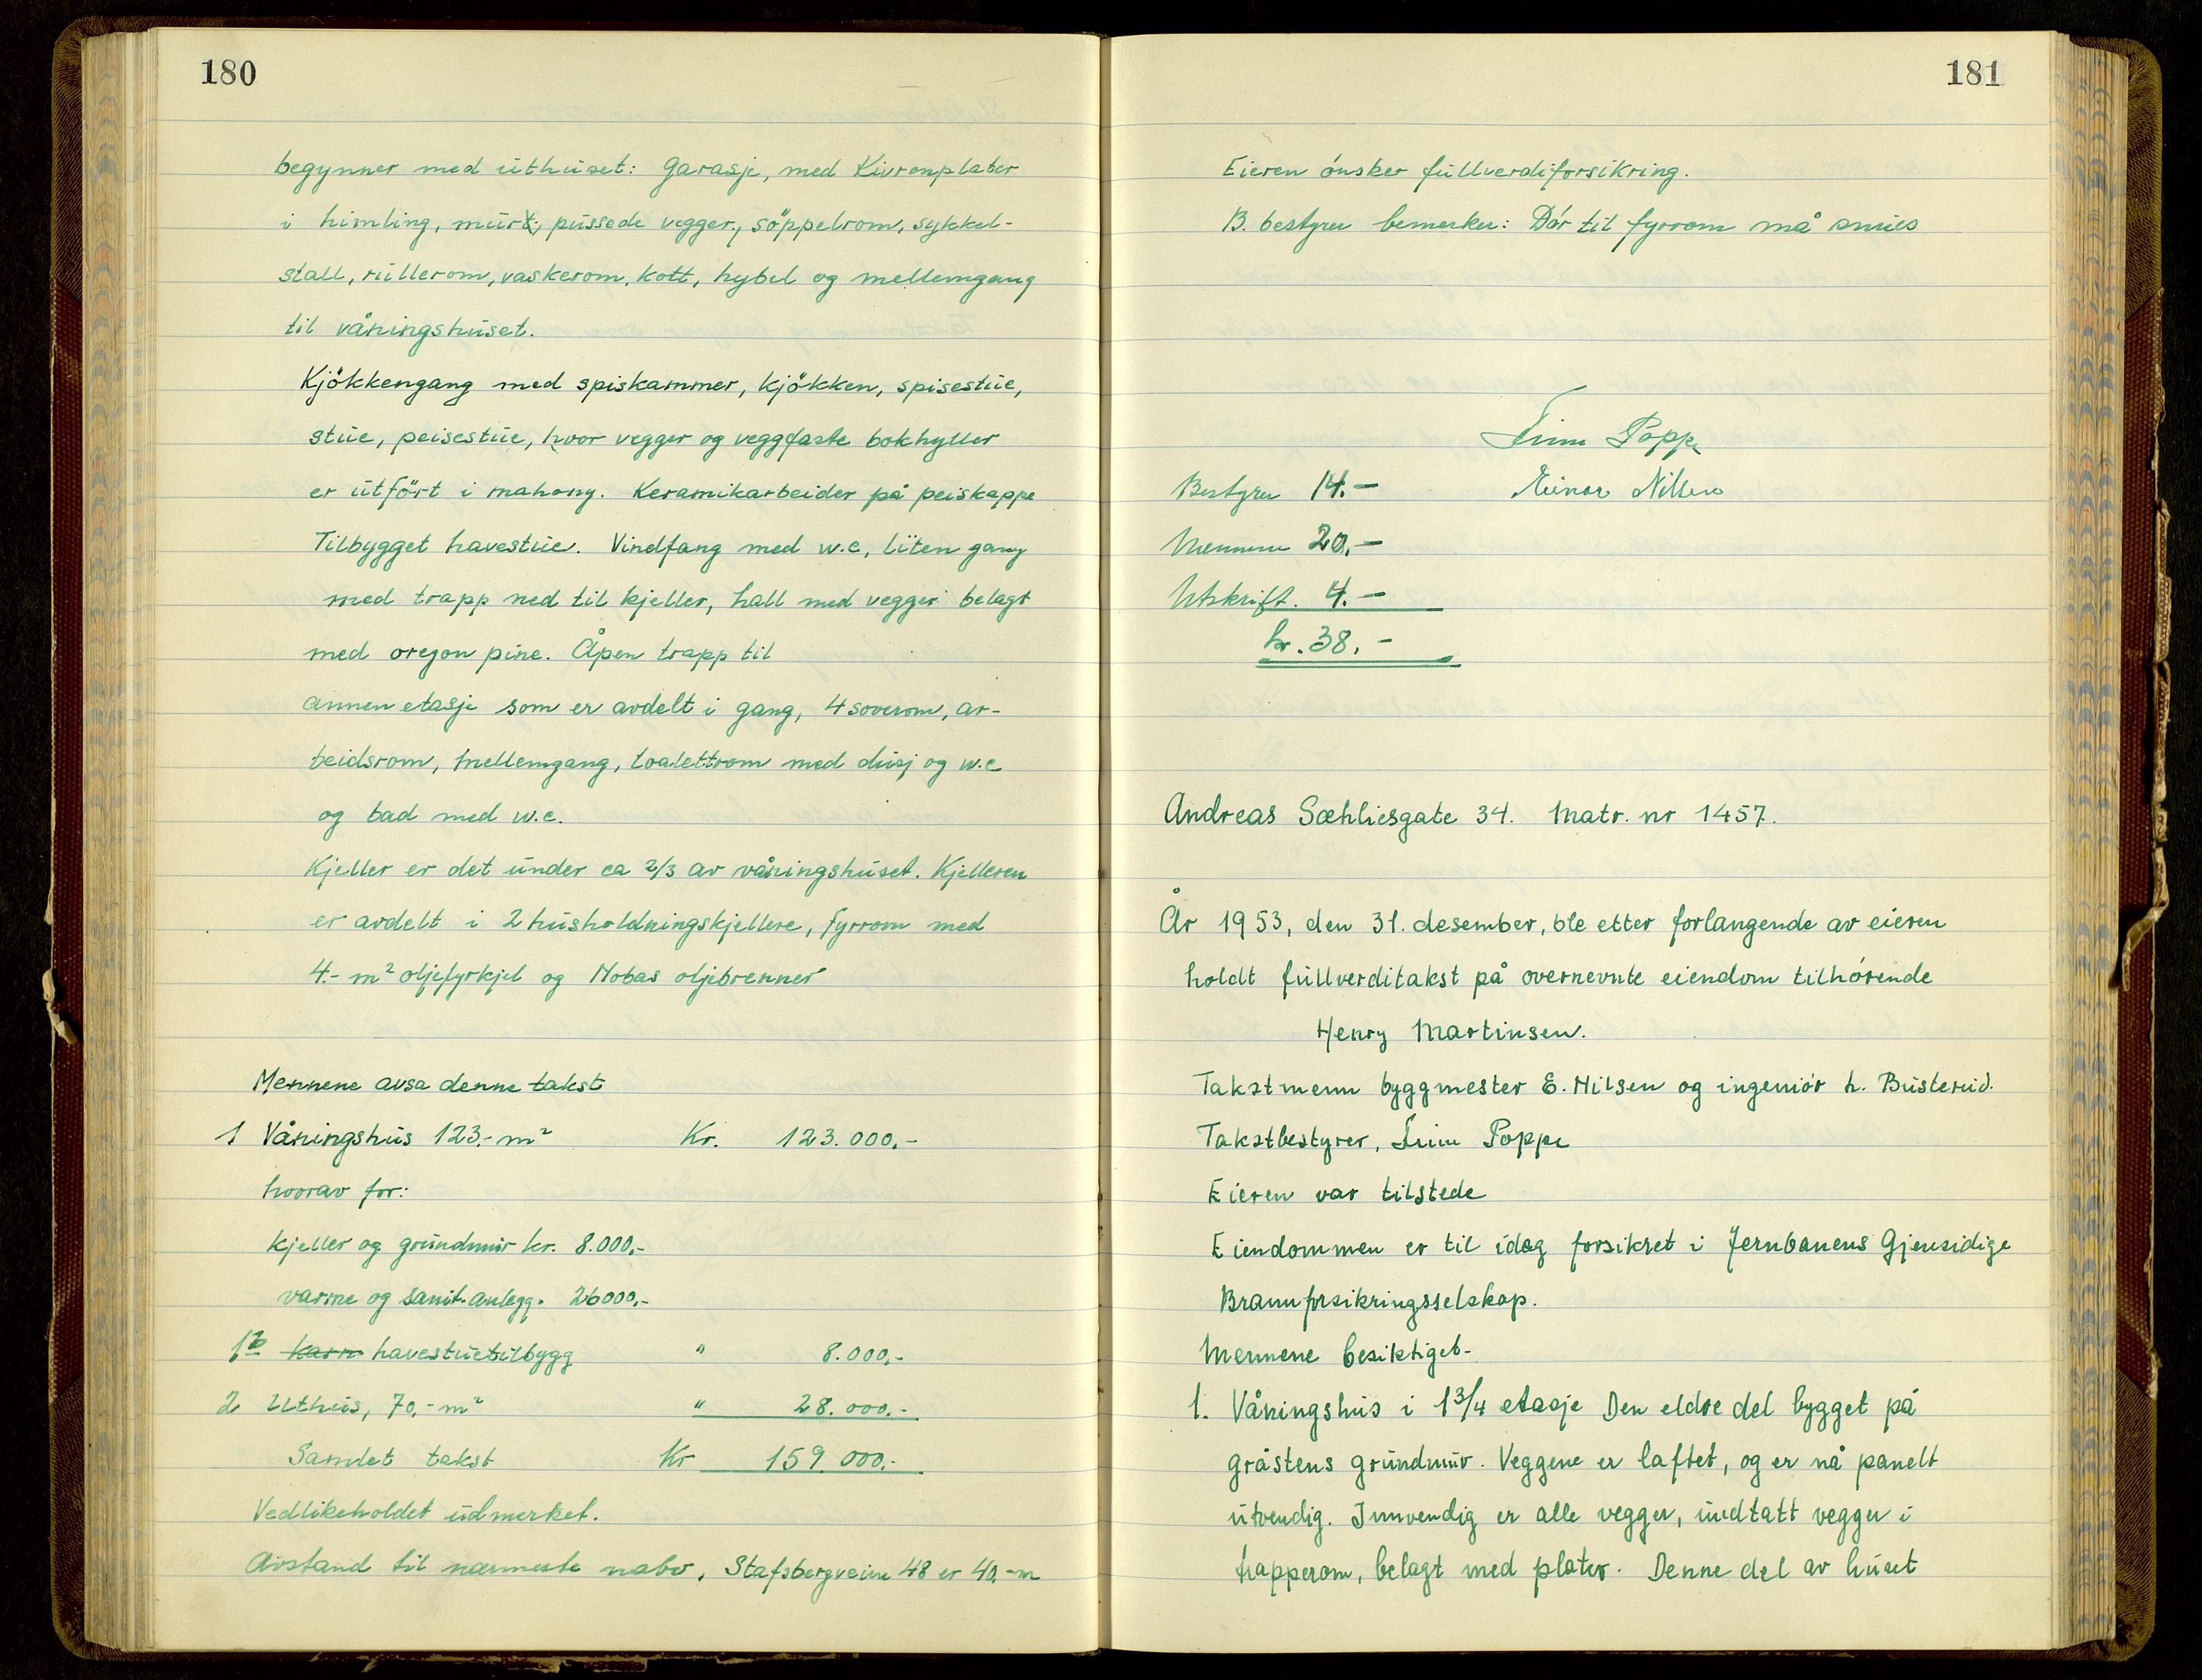 180
begynner med uthuset: Garasje, med Kivronplater
i himling, murt, pussede vegger, söppelrom, sykkel-
stall, rullerom, vaskerom, kott, hybel og mellemgang
til våningshuset.
Kjökkengang med spiskammer, kjökken, spisestue,
stue, peisestue, hvor vegger og veggfaste bokhyller
er utfört i mahony. Keramikarbeider på peiskappe
Tilbygget havestue. Vindfang med w.c, liten gang
med trapp ned til kjeller, hall med vegger belagt
med oregon pine. Åpen trapp til
annen etasje som er avdelt i gang, 4 soverom, ar-
beidsrom, mellemgang, toalettrom med dusj og w.c
og bad med w.c.
Kjeller er det under ca 2/3 av våningshuset. Kjelleren
er avdelt i 2 husholdningskjellere, fyrrom med
4.- m² oljefyrkjel og Nobas oljebrenner
Mennene avsa denne takst
1 Våningshus 123.- m² Kr. 123.000.-
hvorav for:
kjeller og grundmur kr. 8.000.-
varme og sanit. anlegg. 26000.-
1b havestuetilbygg " 8.000.-
2 Uthus, 70.- m² " 28.000.-
Samlet takst Kr 159.000.-
Vedlikeholdet udmerket.
Avstand til nærmeste nabo, Stafsbergveien 48 er 40.- m
181
Eieren önsker fullverdiforsikring.
B. bestyrer bemerker: Dör til fyrrom må snues
Finn Poppe
Bestyrer 14.- Einar Nilsen
Mennene 20.-
Utskrift. 4.-
kr. 38.-
Andreas Sæhliesgate 34. Matr. nr 1457.
År 1953, den 31. desember, ble etter forlangende av eieren
holdt fullverditakst på overnevnte eiendom tilhörende
Henry Martinsen.
Takstmenn byggmester E. Nilsen og ingeniör h. Busterud.
Takstbestyrer, Finn Poppe
Eieren var tilstede
Eiendommen er til idag forsikret i Jernbanens Gjensidige
Brannforsikringsselskap.
Mennene besiktiget-
1. Våningshus i 1 3/4 etasje Den eldre del bygget på
gråstens grundmur. Veggene er laftet, og er nå panelt
utvendig. Innvendig er alle vegger, undtatt vegger i
trapperom, belagt med plater. Denne del av huset